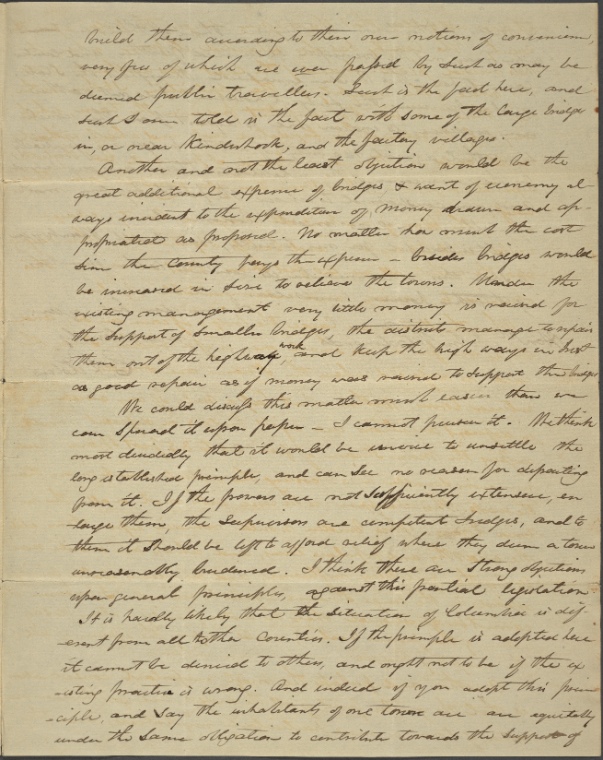 build them according to their own notions of convenience,
very few of which are ever passed by such as may be
deemed public travellers. Such is the fact here, and
such I am told is the fact with some of the large bridges
in, or near Kinderhook, and the factory villages.
Another and not the least objection would be the
great additional expense of bridges & want of economy al-
ways incident to the expenditure of money drawn and ap-
propriated as proposed. No matter how much the cost
since the County pays the expense - besides bridges would
be increased in size to relieve the towns. Under the
existing management very little money is raised for
the support of smaller bridges, the districts manage to repair
them out of the highway work, and keep the high ways in just
as good repair as if money was raised to support the bridges
We could discuss this matter much easier than we
can spread it upon paper - I cannot pursue it. We think
most decidedly that it would be unwise to unsettle the
long established principle, and can see no reason for departing
from it. If the powers are not sufficiently extensive, en-
large them, the Supervisors are competent Judges, and to
them it should be left to afford relief where they deem a town
unreasonably burdened. I think there are strong objections
upon general principles, against this partial legislation
It is hardly likely that the situation of Columbia is dif-
erent from all other Counties. If the principle is adopted here
it cannot be denied to others, and ought not to be if the ex
-isting practice is wrong. And indeed if you adopt this prin
-ciple, and say the inhabitants of one town are are equitably
under the same obligation to contribute towards the support of